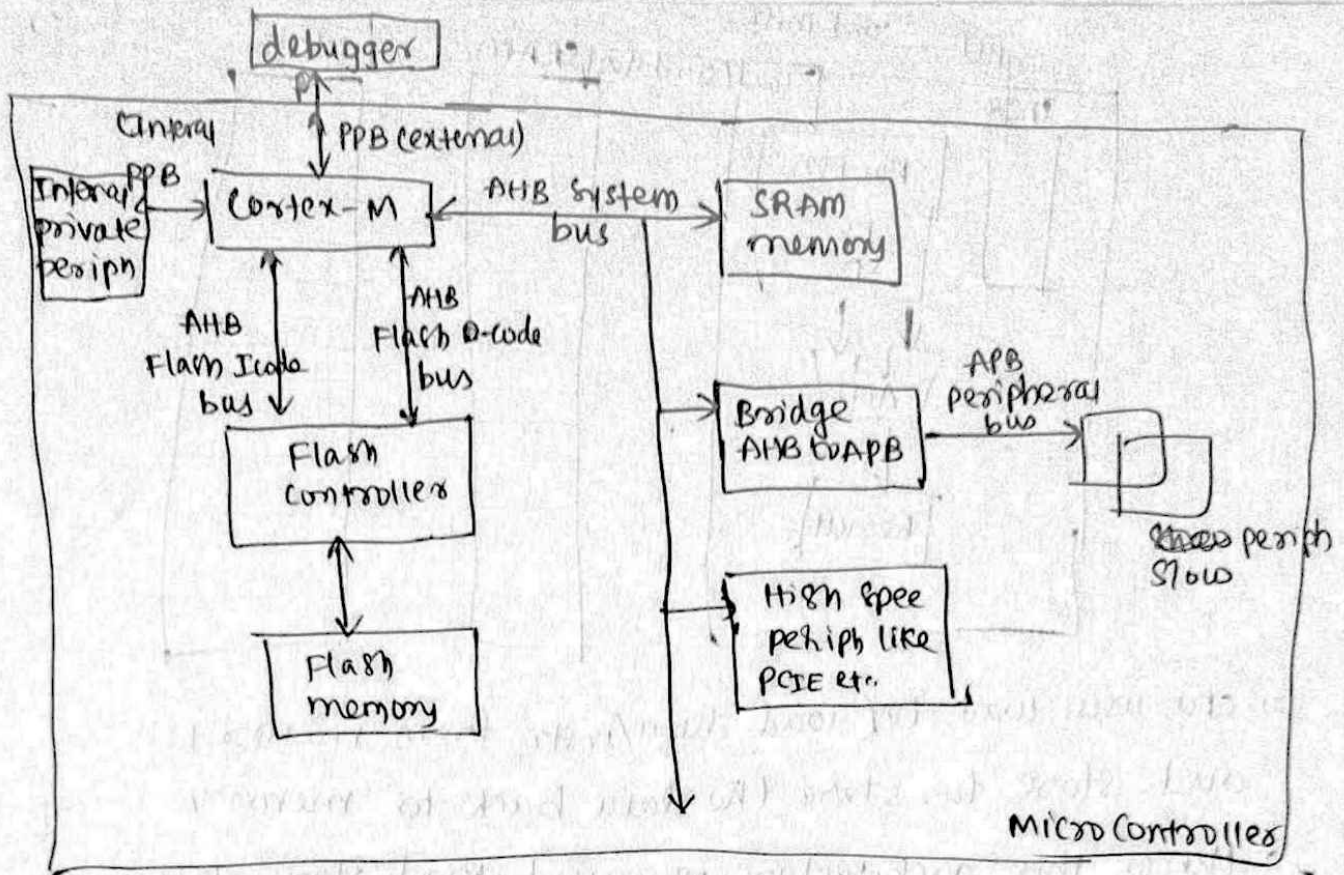 debugger
(Interal
PPB
PPB (external)
Interal
private
periph
Cortex-M
AHB System
bus
SRAM
memory
AHB
Flash Icode
bus
AHB
Flash D-code
bus
Flash
controller
Flash
memory
Bridge
AHB to APB
APB
peripheral
bus
periph
slow
High spee
periph like
PCIE etc.
Micro Controller